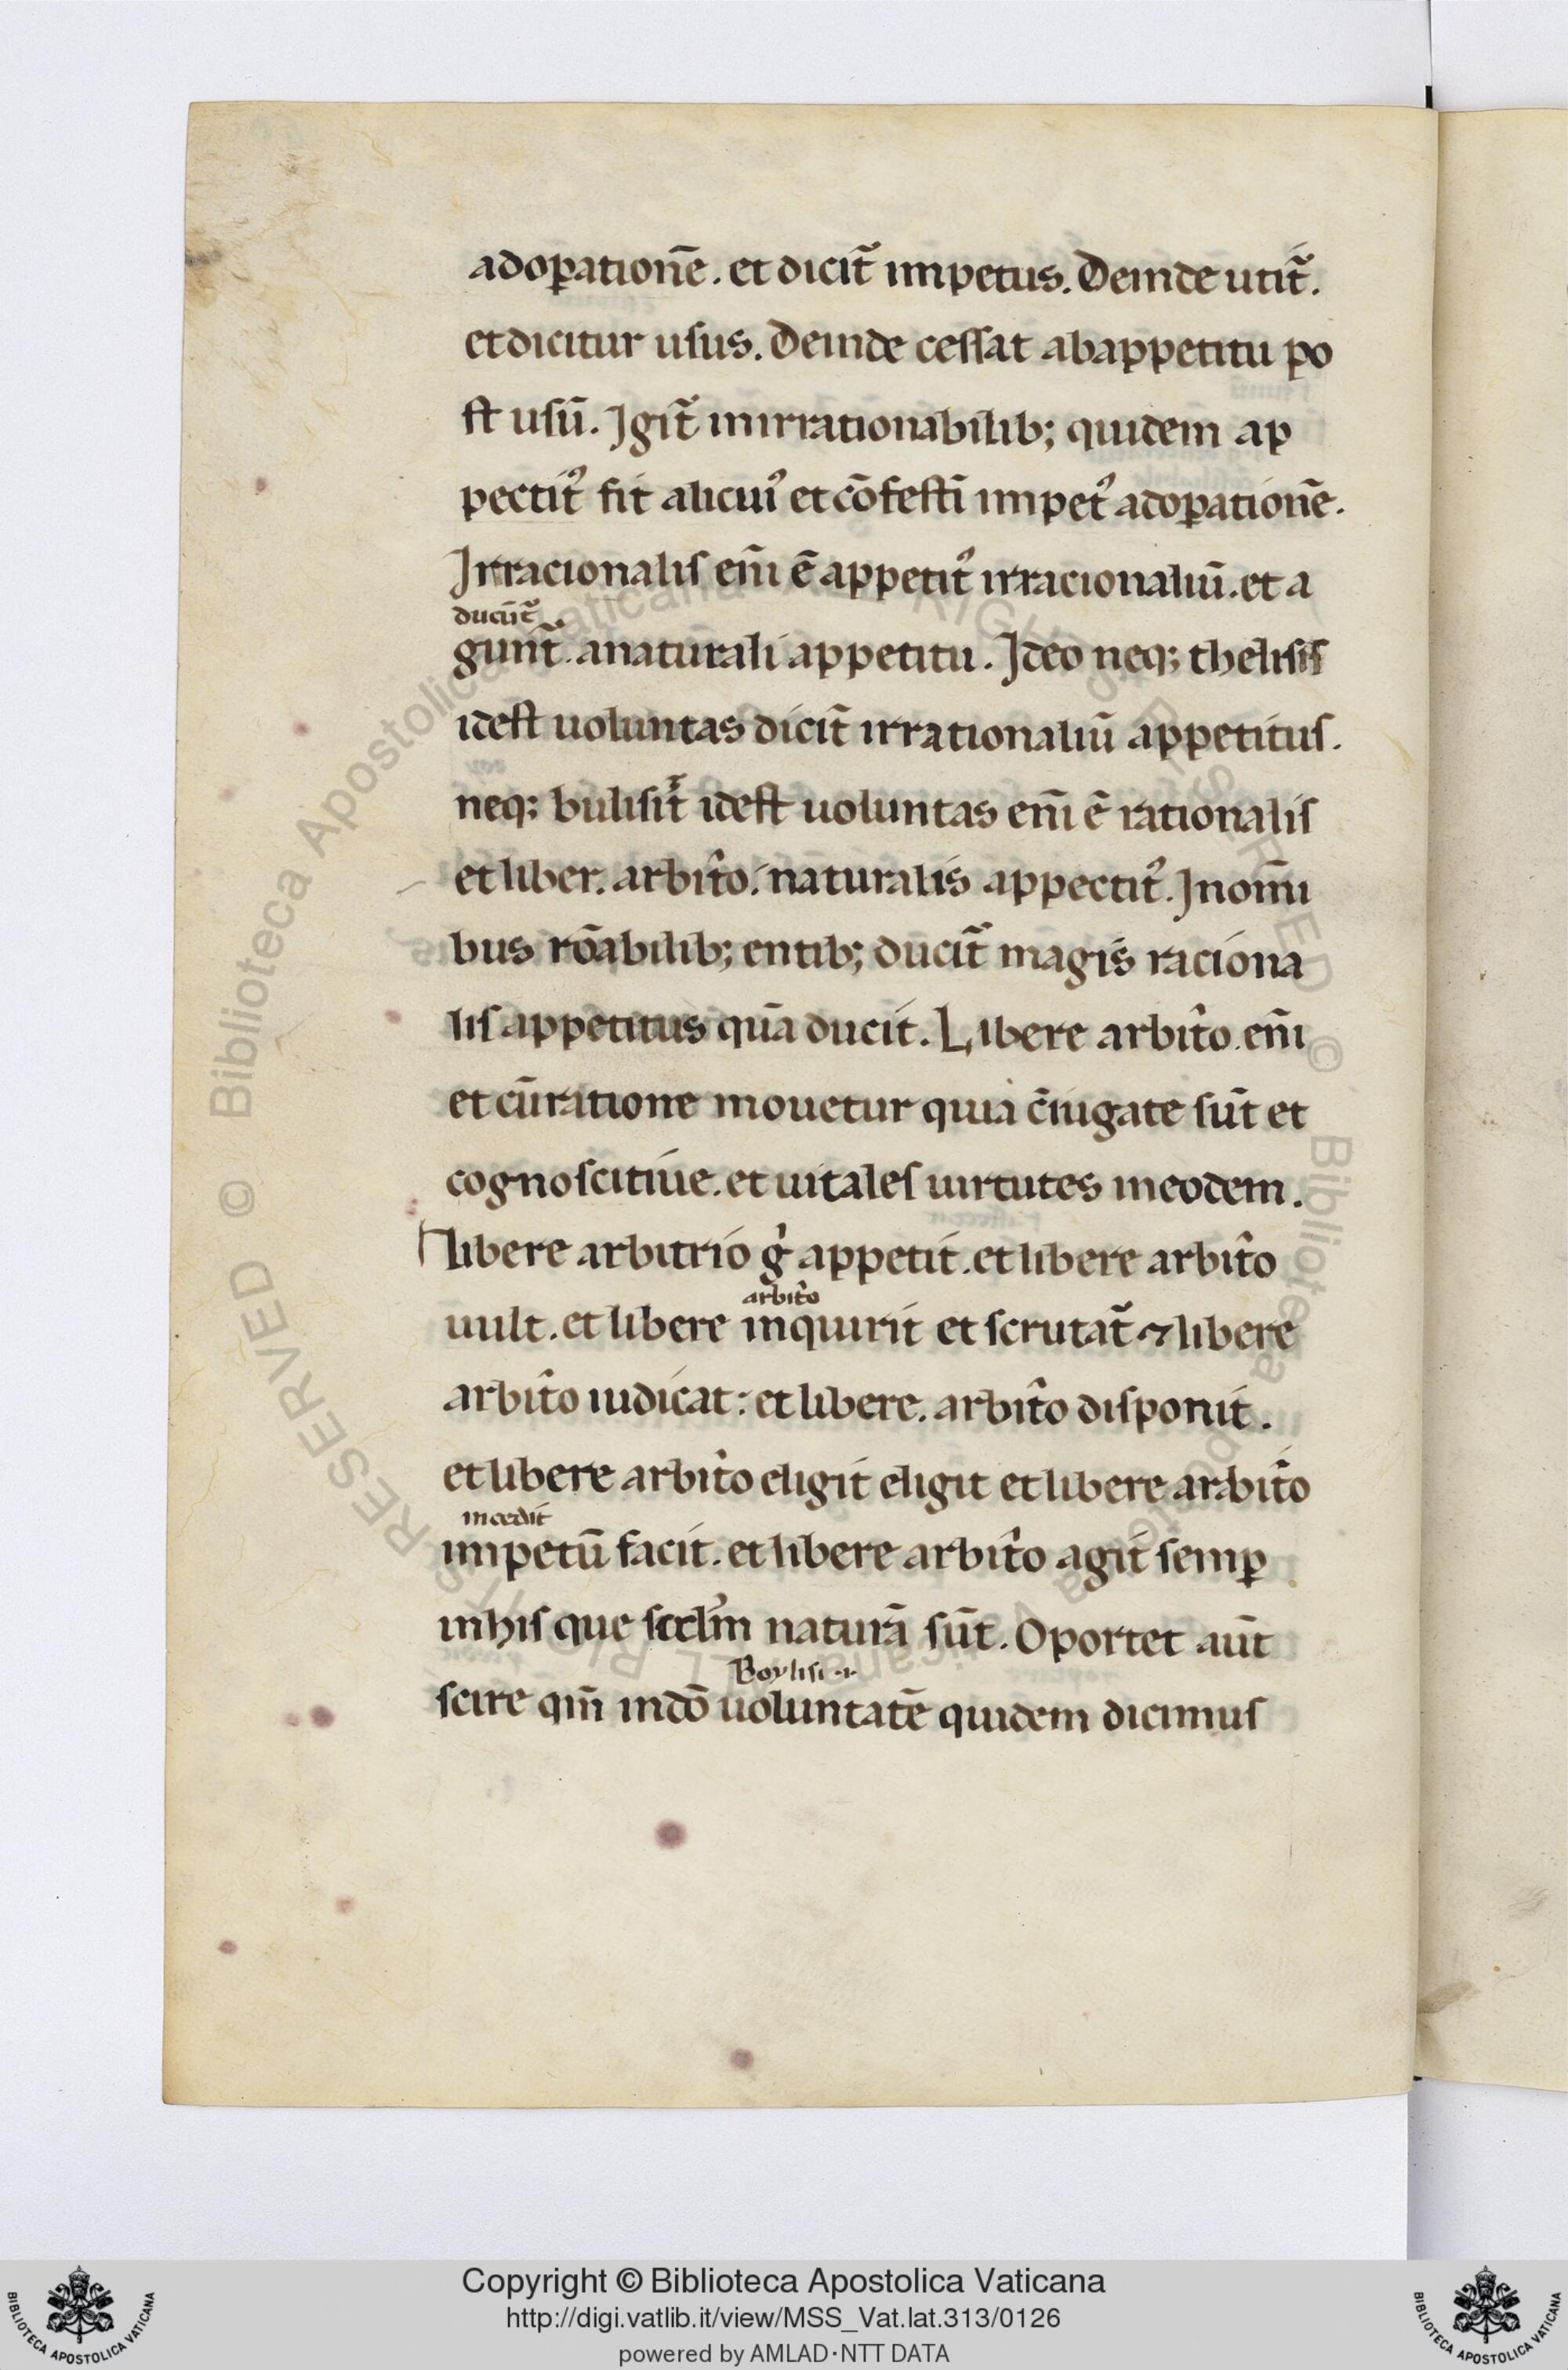 adoꝑationē. et dicit̃ impetus. Deinde utit̃.
et dicitur usus. Deinde cessat ab appetitu po
st usū. Igit̃ in irrationabilib; quidem ap
pectitꝰ fit alicuiꝰ et cōfestī impetꝰ adoꝑationē.
Irracionalis eni̅ ē appetitꝰ irracionaliū. et a
ducūt̃
gunt̃. a naturali appetitu. Ideo neq; thelisis
idest uoluntas dicit̃ irrationaliū appetitus.
neq; bulisit̃ idest uoluntas eni̅ ē rationalis
et liber. arbit̂o. naturalis appectitꝰ. In om̄i
bus rōabilib; entib; ducit̃ magis raciona
lis appetitus quā ducit. Libere arbit̂o. eni̅
et cū ratione mouetur quia c̄iugate sūt et
cognoscitiue. et uitales uirtutes in eodem.
libere arbitrio g̊ appetit. et libere arbit̂o
arbit̂o
uult. et libere inquirit et scrutat̃ ⁊ libere
arbit̂o iudicat: et libere. arbit̂o disponit.
et libere arbit̂o eligit eligit et libere arbit̂o
incedit
impetū facit. et libere arbit̂o agit semꝑ
in his que naturā sūt. Oportet aūt
Boylisi .i.
scire qm̄ in dō uoluntatē quidem dicimus
Copyright © Biblioteca Apostolica Vaticana
http://digi.vatlib.it/view/MSS_Vat.lat.313/0126
powered by AMLAD·NTT DATA